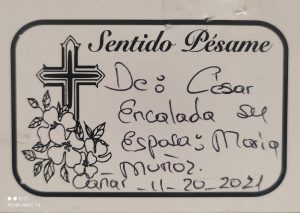 Sentido Pésame
De: César
Encalada su
Esposa: Maria
Muñoz.
Cañar - 11-20-2021